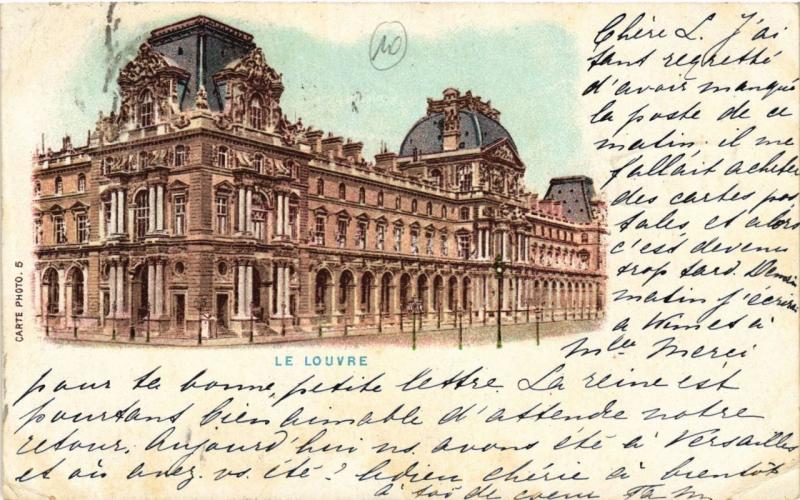 10
Chère L. J'ai
tant regretté
d'avoir manqué
la poste de ce
matin. il me
fallait acheter
des cartes pos
tales, et alors
c'est devenu
trop tard. Demain
matin j'écrirai
a et à
Mlle Merci
CARTE PHOTO. 5
LE LOUVRE
pour ta bonne, petite lettre. La reine est
pourtant bien aimable d'attendre notre
retour. Aujourd'hui ns. avons été à Versailles
et où avez. vs. été ? Adieu chérie à bientôt
à toi de coeur